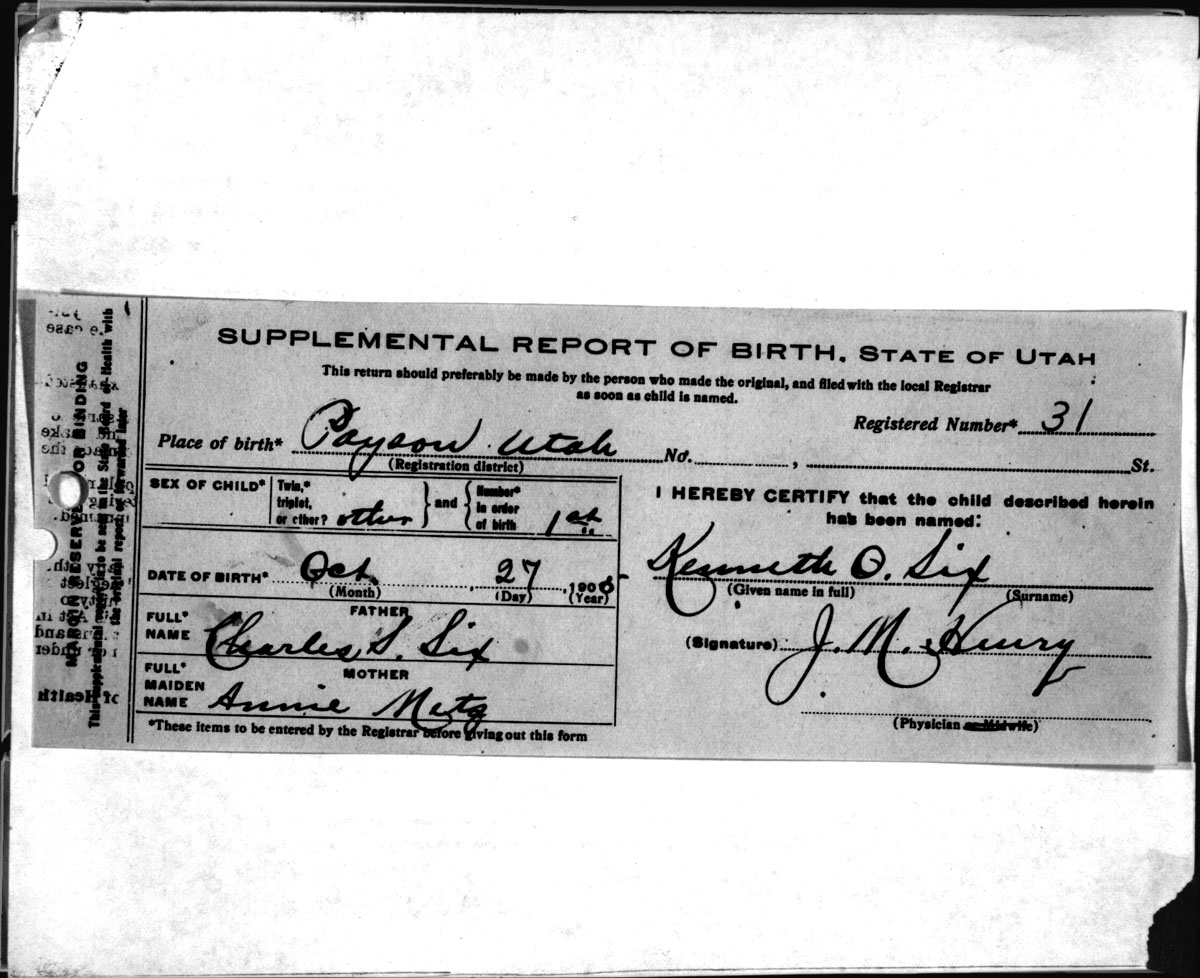 SUPPLEMENTAL REPORT OF BIRTH. STATE OF UTAH
This return should preferably be made by the person who made the original, and filed with the local Registrar
as soon as child is named.
Registered Number* 31
Place of birth* Payson Utah No. , St.
(Registration district)
SEX OF CHILD* Twin,* triplet, or other? other } and { Number* in order of birth 1st
I HEREBY CERTIFY that the child described herein
has been named:
Kenneth O. Six
(Given name in full) (Surname)
DATE OF BIRTH* Oct. , 27 , 1908
(Month) (Day) (Year)
FATHER
FULL* NAME Charles S. Six
(Signature) J. M. Henry
MOTHER
FULL* MAIDEN NAME Annie Metz
(Physician or Midwife)
*These items to be entered by the Registrar before giving out this form
MARGIN RESERVED FOR BINDING